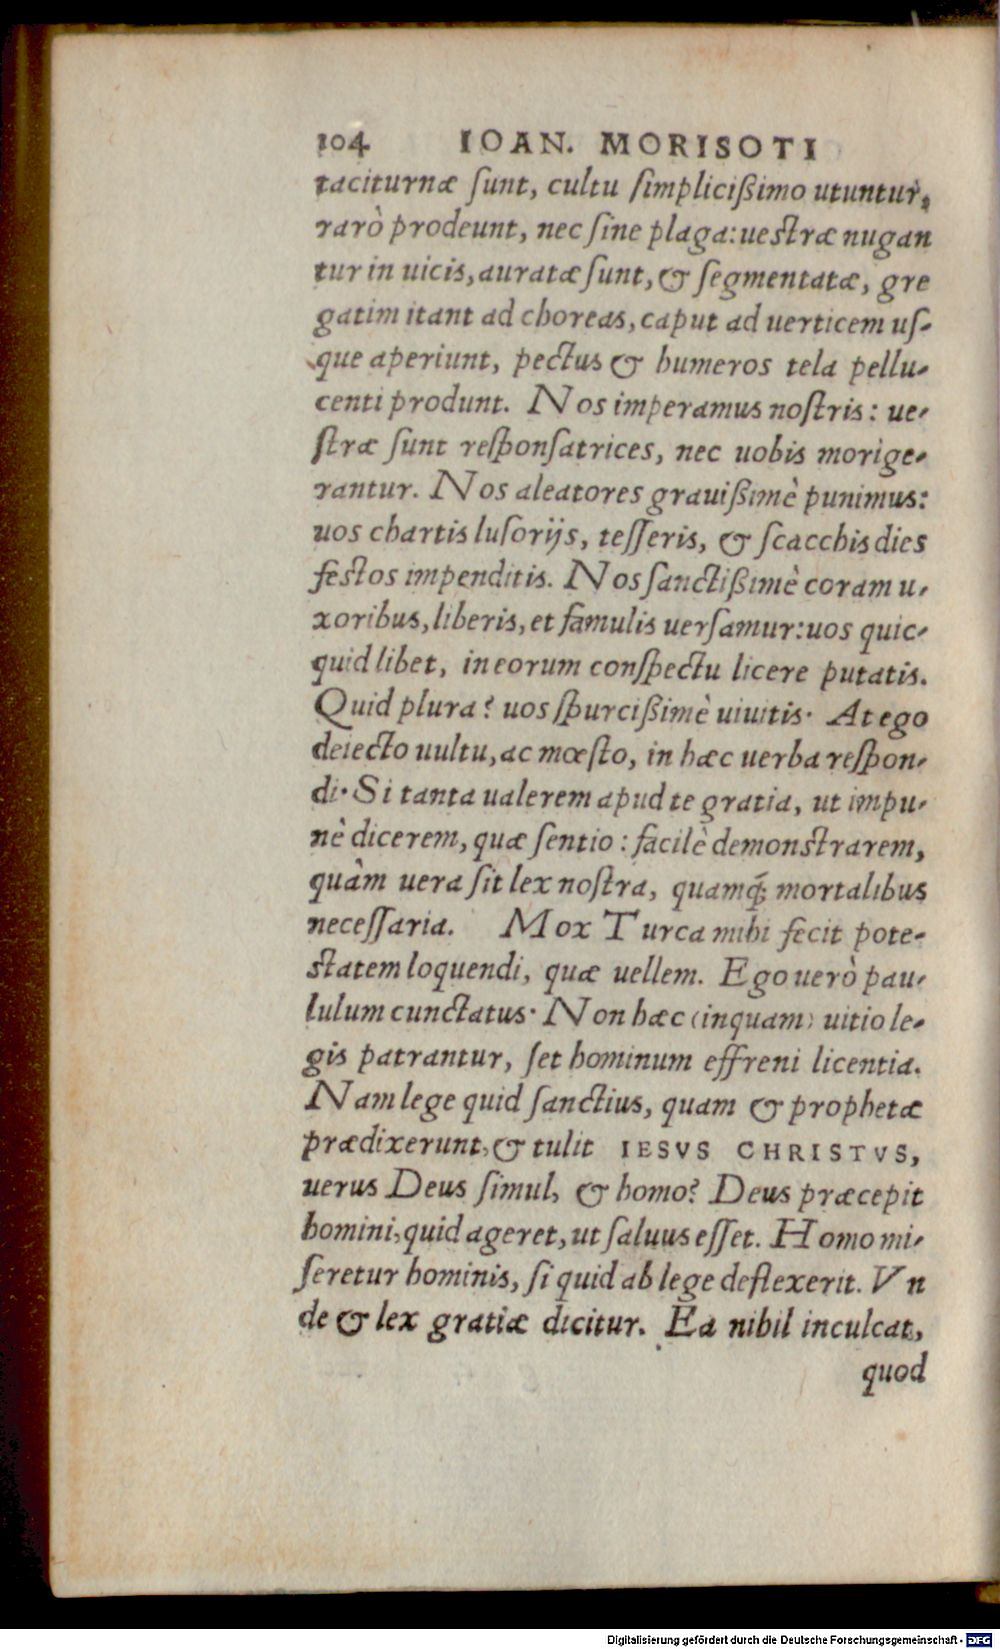 104 IOAN. MORISOTI
taciturnæ ſunt, cultu ſimplicißimo utuntur,
rarò prodeunt, nec ſine plaga: ueſtræ nugan
tur in uicis, auratæ ſunt, & ſegmentatæ, gre
gatim itant ad choreas, caput ad uerticem uſ-
que aperiunt, pectus & humeros tela pellu-
centi produnt. Nos imperamus noſtris: ue-
ſtræ ſunt reſponſatrices, nec uobis morige-
rantur. Nos aleatores grauißimè punimus:
uos chartis luſorijs, teſſeris, & ſcacchis dies
feſtos impenditis. Nos ſanctißimè coram u-
xoribus, liberis, et famulis uerſamur: uos quic-
quid libet, in eorum conſpectu licere putatis.
Quid plura? uos ſpurcißimè uiuitis. At ego
deiecto uultu, ac mœſto, in hæc uerba reſpon-
di. Si tanta ualerem apud te gratia, ut impu-
nè dicerem, quæ ſentio: facilè demonſtrarem,
quàm uera ſit lex noſtra, quamq́; mortalibus
neceſſaria. Mox Turca mihi fecit pote-
ſtatem loquendi, quæ uellem. Ego uerò pau-
lulum cunctatus. Non hæc (inquam) uitio le-
gis patrantur, ſet hominum effreni licentia.
Nam lege quid ſanctius, quam & prophetæ
prædixerunt, & tulit IESVS CHRISTVS,
uerus Deus ſimul, & homo? Deus præcepit
homini, quid ageret, ut ſaluus eſſet. Homo mi-
ſeretur hominis, ſi quid ab lege deflexerit. Vn
de & lex gratiæ dicitur. Ea nihil inculcat,
quod
Digitalisierung gefördert durch die Deutsche Forschungsgemeinschaft - DFG